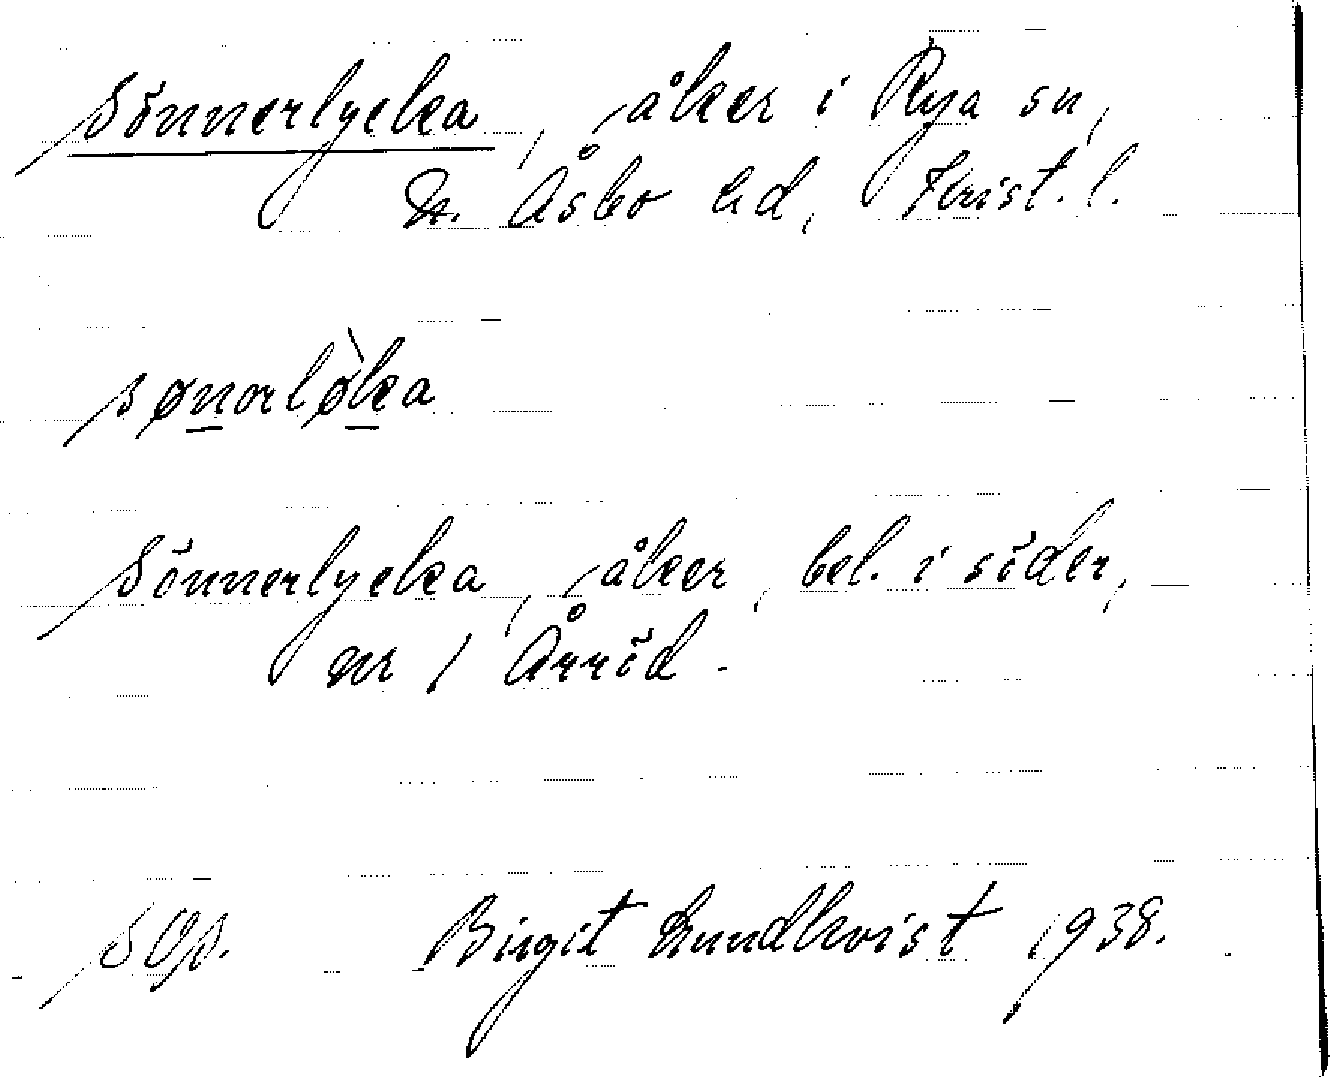 Sönnerlycka, åker i Rya sn,
N. Åsbo hd, Krist. l.
sønarlø̀ka
Sönnerlycka, åker, bel. i söder,
nr 1 Årröd.
Birgit Lundkvist 1938.